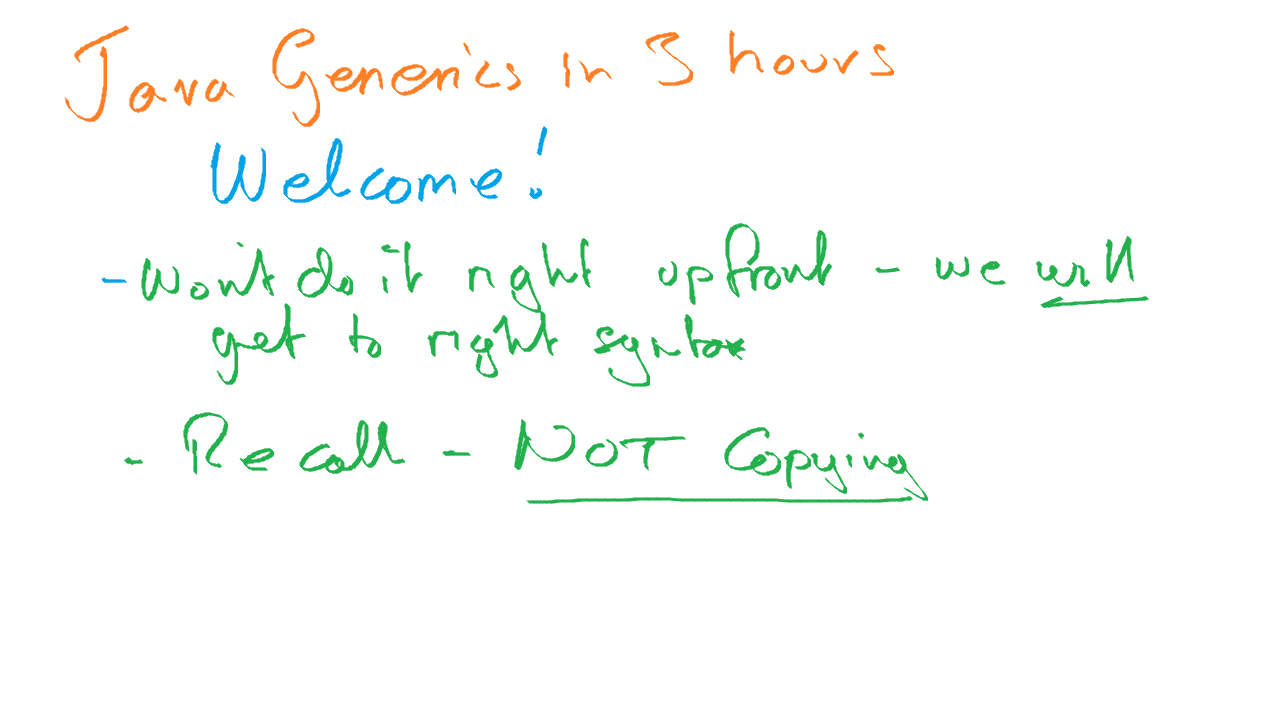 Java Generics in 3 hours
Welcome!
- Won't do it right upfront - we will
get to right syntax
- Recall - NOT Copying